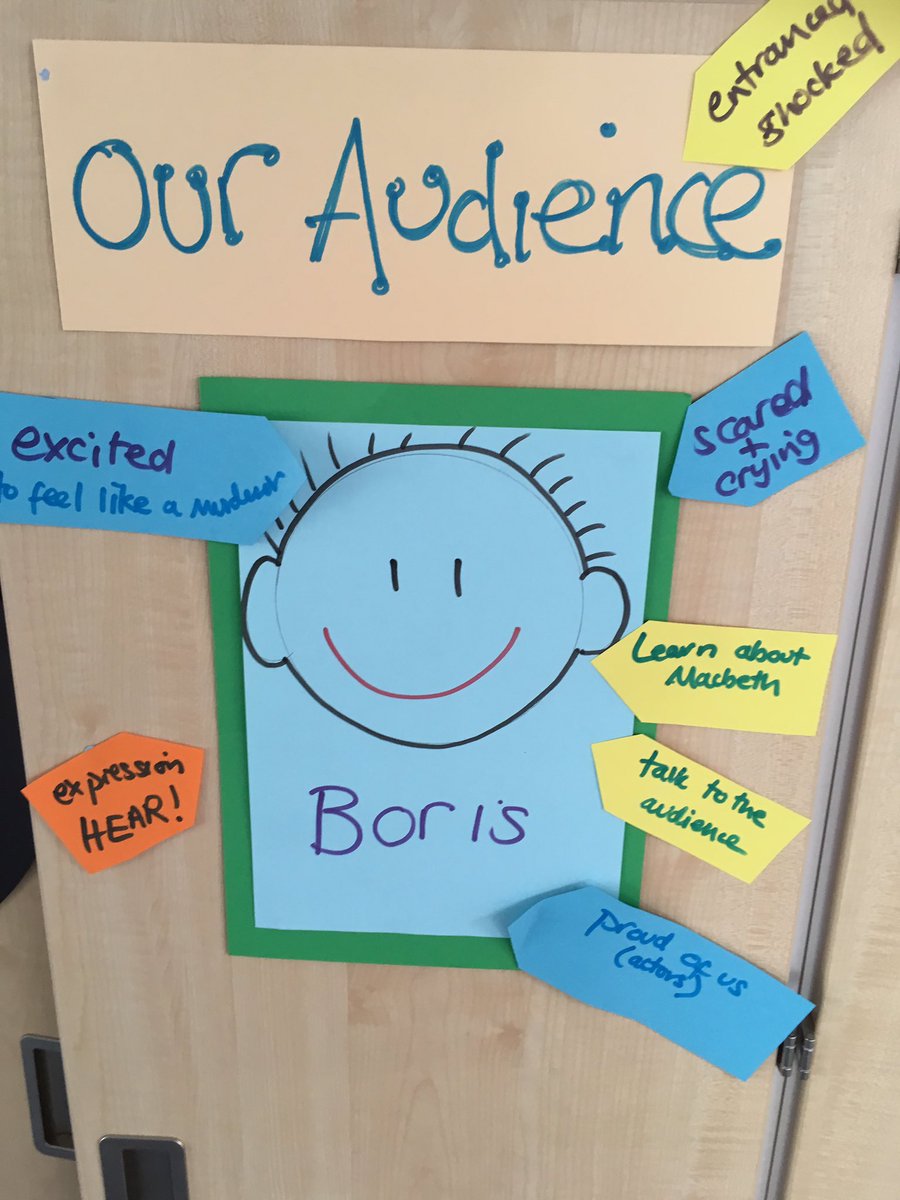 Our Audience
entranced
shocked
excited
to feel like a murderer
scared
+
crying
Learn about
Macbeth
expression
HEAR!
talk to the
audience
Boris
proud of us
(actors)